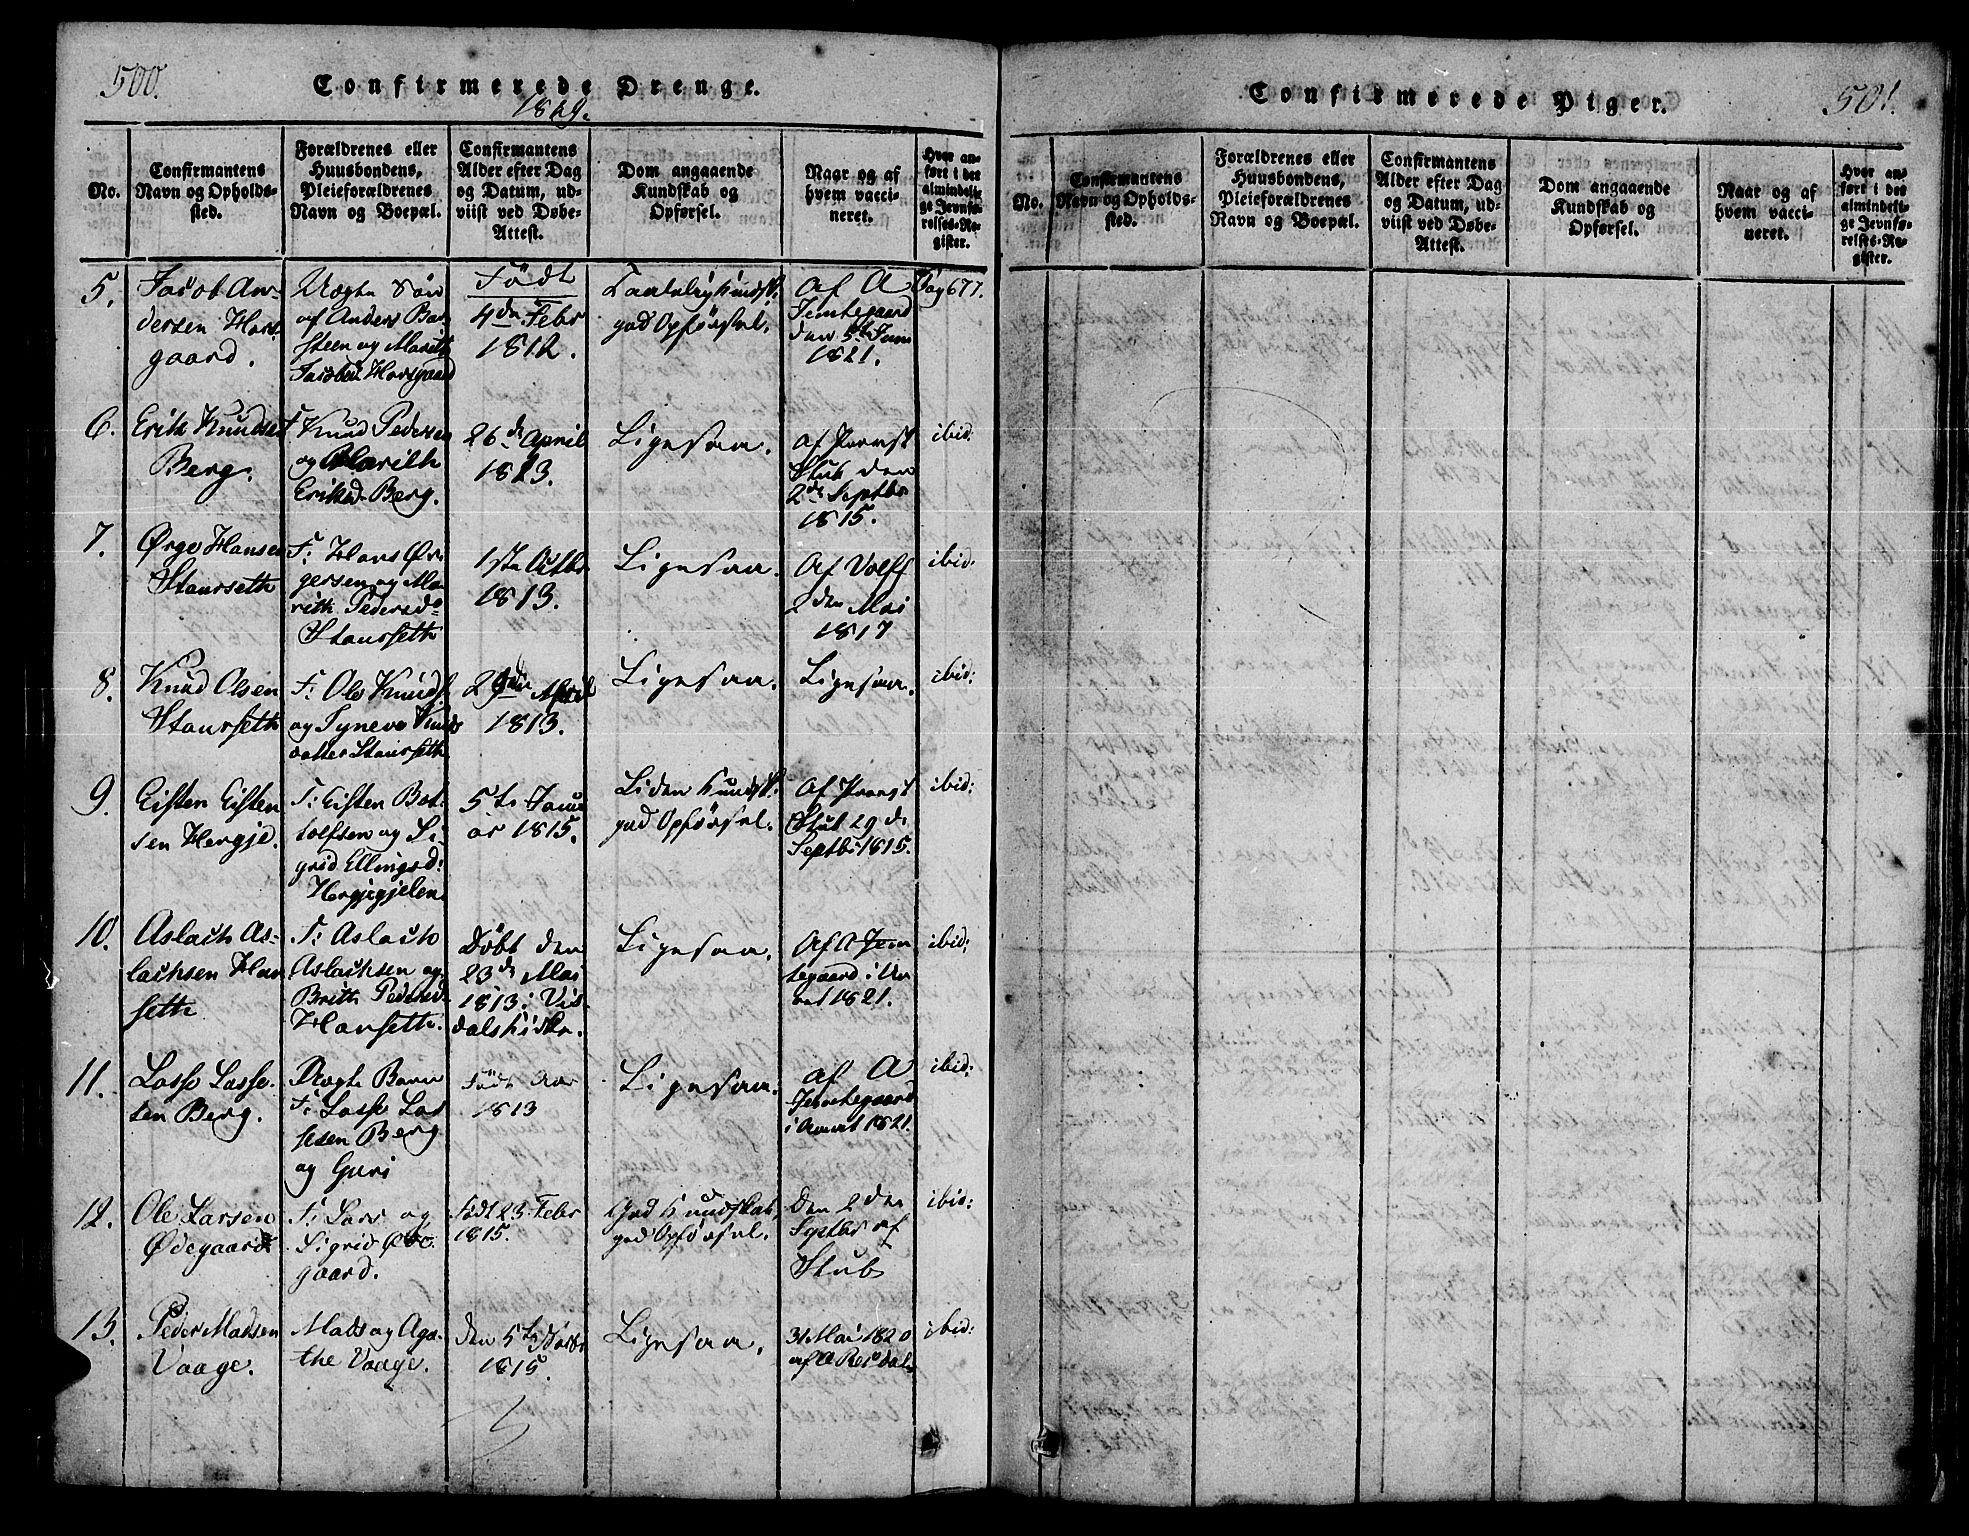 500.
Confirmerede Drenge.
1829.
No.
Confirmantens
Navn og Opholds-
sted.
Forældrenes eller
Huusbondens,
Pleieforældrenes
Navn og Boepæl.
Confirmantens
Alder efter Dag
og Datum, ud-
viist ved Døbe-
Attest.
Dom angaaende
Kundskab og
Opførsel.
Naar og af
hvem vacci-
neret.
Hvor an-
ført i det
almindeli-
ge Jevnfø-
relses-Re-
gister.
5.
Jacob An-
dersen Hors
gaard.
Uægte Søn
af Anders Bar
steen og Marith
Jacobsd Horsgaard
Født
4de Febr
1812.
Taalelig Kundsk:
god Opførsel.
af A
Jemtegaard
den 5te Juni
1821.
Pag 677.
6.
Erik Knudsen
Berg.
F. Knud Pedersen
og Marith
Eriksd. Berg.
26de April
1813.
Ligesaa.
af Provst
Stub den
2de Septbr
1815.
ibid.
7.
Ørge Hansen
Staurseth
F: Hans Ør
gersen og Ma
rith Pedersd.
Staurseth
1ste Octbr
1813.
Ligesaa.
Af Wolff
2den Mai
1817
ibid.
8.
Knud Olsen
Staurseth
F: Ole Knuds
og Syneva Knuds
datter Staurseth
April
1813.
Ligesaa.
Ligesaa.
ibid:
9.
Eisten Eisten
sen Hergje.
F: Eisten Bot
tolfsen og Si-
grid Ellingsd:
Hergjegjelen
5te Janu
ar 1815.
Liden Kundsk:
god Opførsel.
Af Provst
Stub 29de
Septbr 1815.
ibid:
10.
Aslach As-
lachsen Han
seth
F: Aslach
Aslachsen og
Brith Pedersd.
Hanseth.
Døbt den
23de Mai
1813 i Vis
dals Kirke.
Ligesaa.
Af A Jem
tegaard i Aa
ret 1821.
ibid:
11.
Lasse Lasse-
sen Berg.
Uægte Barn
F: Lasse Las
sesen Berg
og Guri
Født Aar
1813
Ligesaa.
af A
Jemtegaard
i Aaret 1821.
ibid:
12.
Ole Larsen
Ødegaard
F: Lars og
Sigrid Øde
gaard.
Født 23 Febr
1815.
God Kundskab,
god Opførsel.
Den 2den
Septbr af
Stub
ibid:
13.
Peder Madsen
Vaage.
Mads og Aga-
the Vaage.
den 5te
1815.
Ligesaa.
31 Mai 1820
af A Resdal
ibid:
Confirmerede Piger.
501.
No.
Confirmantens
Navn og Opholds-
sted.
Forældrenes eller
Huusbondens,
Pleieforældrenes
Navn og Boepæl.
Confirmantens
Alder efter Dag
og Datum, ud-
viist ved Døbe-
Attest.
Dom angaaende
Kundskab og
Opførsel.
Naar og af
hvem vacci-
neret.
Hvor an-
ført i det
almindeli-
ge Jevnfø-
relses-Re-
gister.